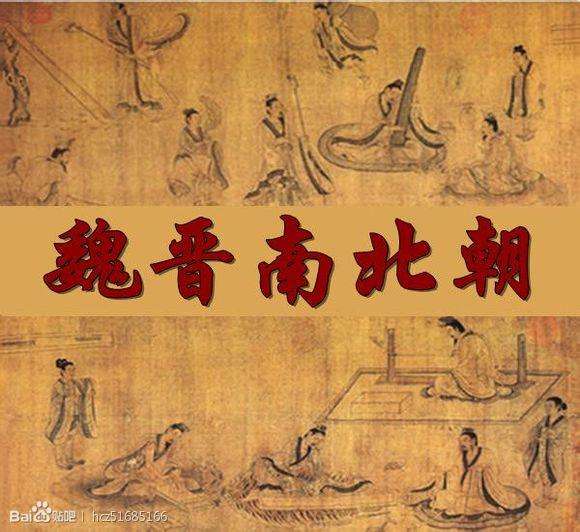 魏晋南北朝
Bai贴吧 | hcz51685166